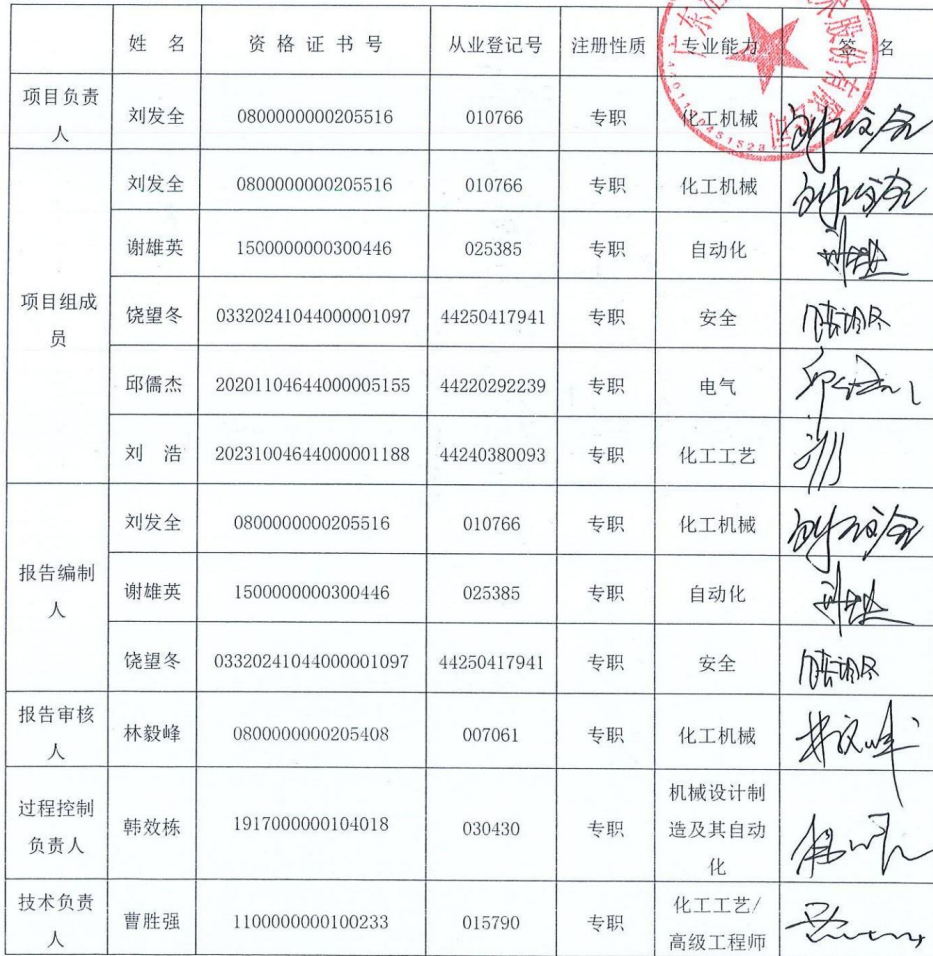 姓 名 资 格 证 书 号 从业登记号 注册性质 专业能力 签 名
项目负责人 刘发全 0800000000205516 010766 专职 化工机械
项目组成员 刘发全 0800000000205516 010766 专职 化工机械
谢雄英 1500000000300446 025385 专职 自动化
饶望冬 03320241044000001097 44250417941 专职 安全
邱儒杰 20201104644000005155 44220292239 专职 电气
刘 浩 20231004644000001188 44240380093 专职 化工工艺
报告编制人 刘发全 0800000000205516 010766 专职 化工机械
谢雄英 1500000000300446 025385 专职 自动化
饶望冬 03320241044000001097 44250417941 专职 安全
报告审核人 林毅峰 0800000000205408 007061 专职 化工机械
过程控制负责人 韩效栋 1917000000104018 030430 专职 机械设计制造及其自动化
技术负责人 曹胜强 1100000000100233 015790 专职 化工工艺/高级工程师